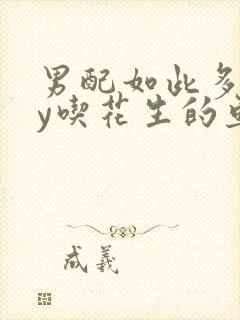 男配如此多
y喫花生的
成羲